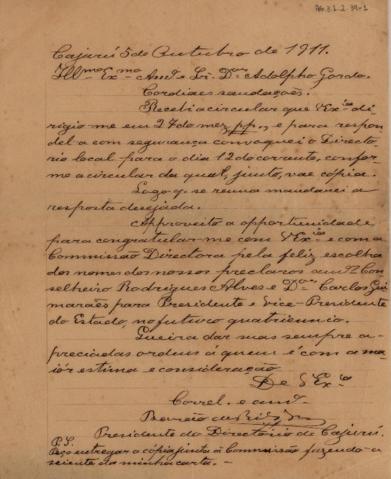 Cajurú 5 de Outubro de 1911.
Illmo Exmo Amº e Sr. Dor Adolpho Gordo.
Cordiaes saudações.
Recebi a circular que VExia di-
rigio-me em 27 do mez pp., e para respon
del-a com segurança convoquei o Directo
rio local para o dia 12 do corrente, confor
me a circular da qual, junto, vae cópia.
Logo q. se reuna mandarei a
resposta desejada.
Approveito a opportunidade
para congratular-me com VExia e com a
Commissão Directora pela feliz escolha
dos nomes dos nossos preclaros amos Con
selheiro Rodrigues Alves e Dor Carlos Gui
marães para Presidente e Vice-Presidente
do Estado, no futuro quatriennio.
Queira dar suas sempre a-
preciadas ordens a quem é com a ma
iór estima e consideração
De VExia
Correl. e amº
Presidente do Directorio de Cajurú.
P.S.
Peço entregar a cópia junta á Commissão fazendo-a
sciente da minha carta. -